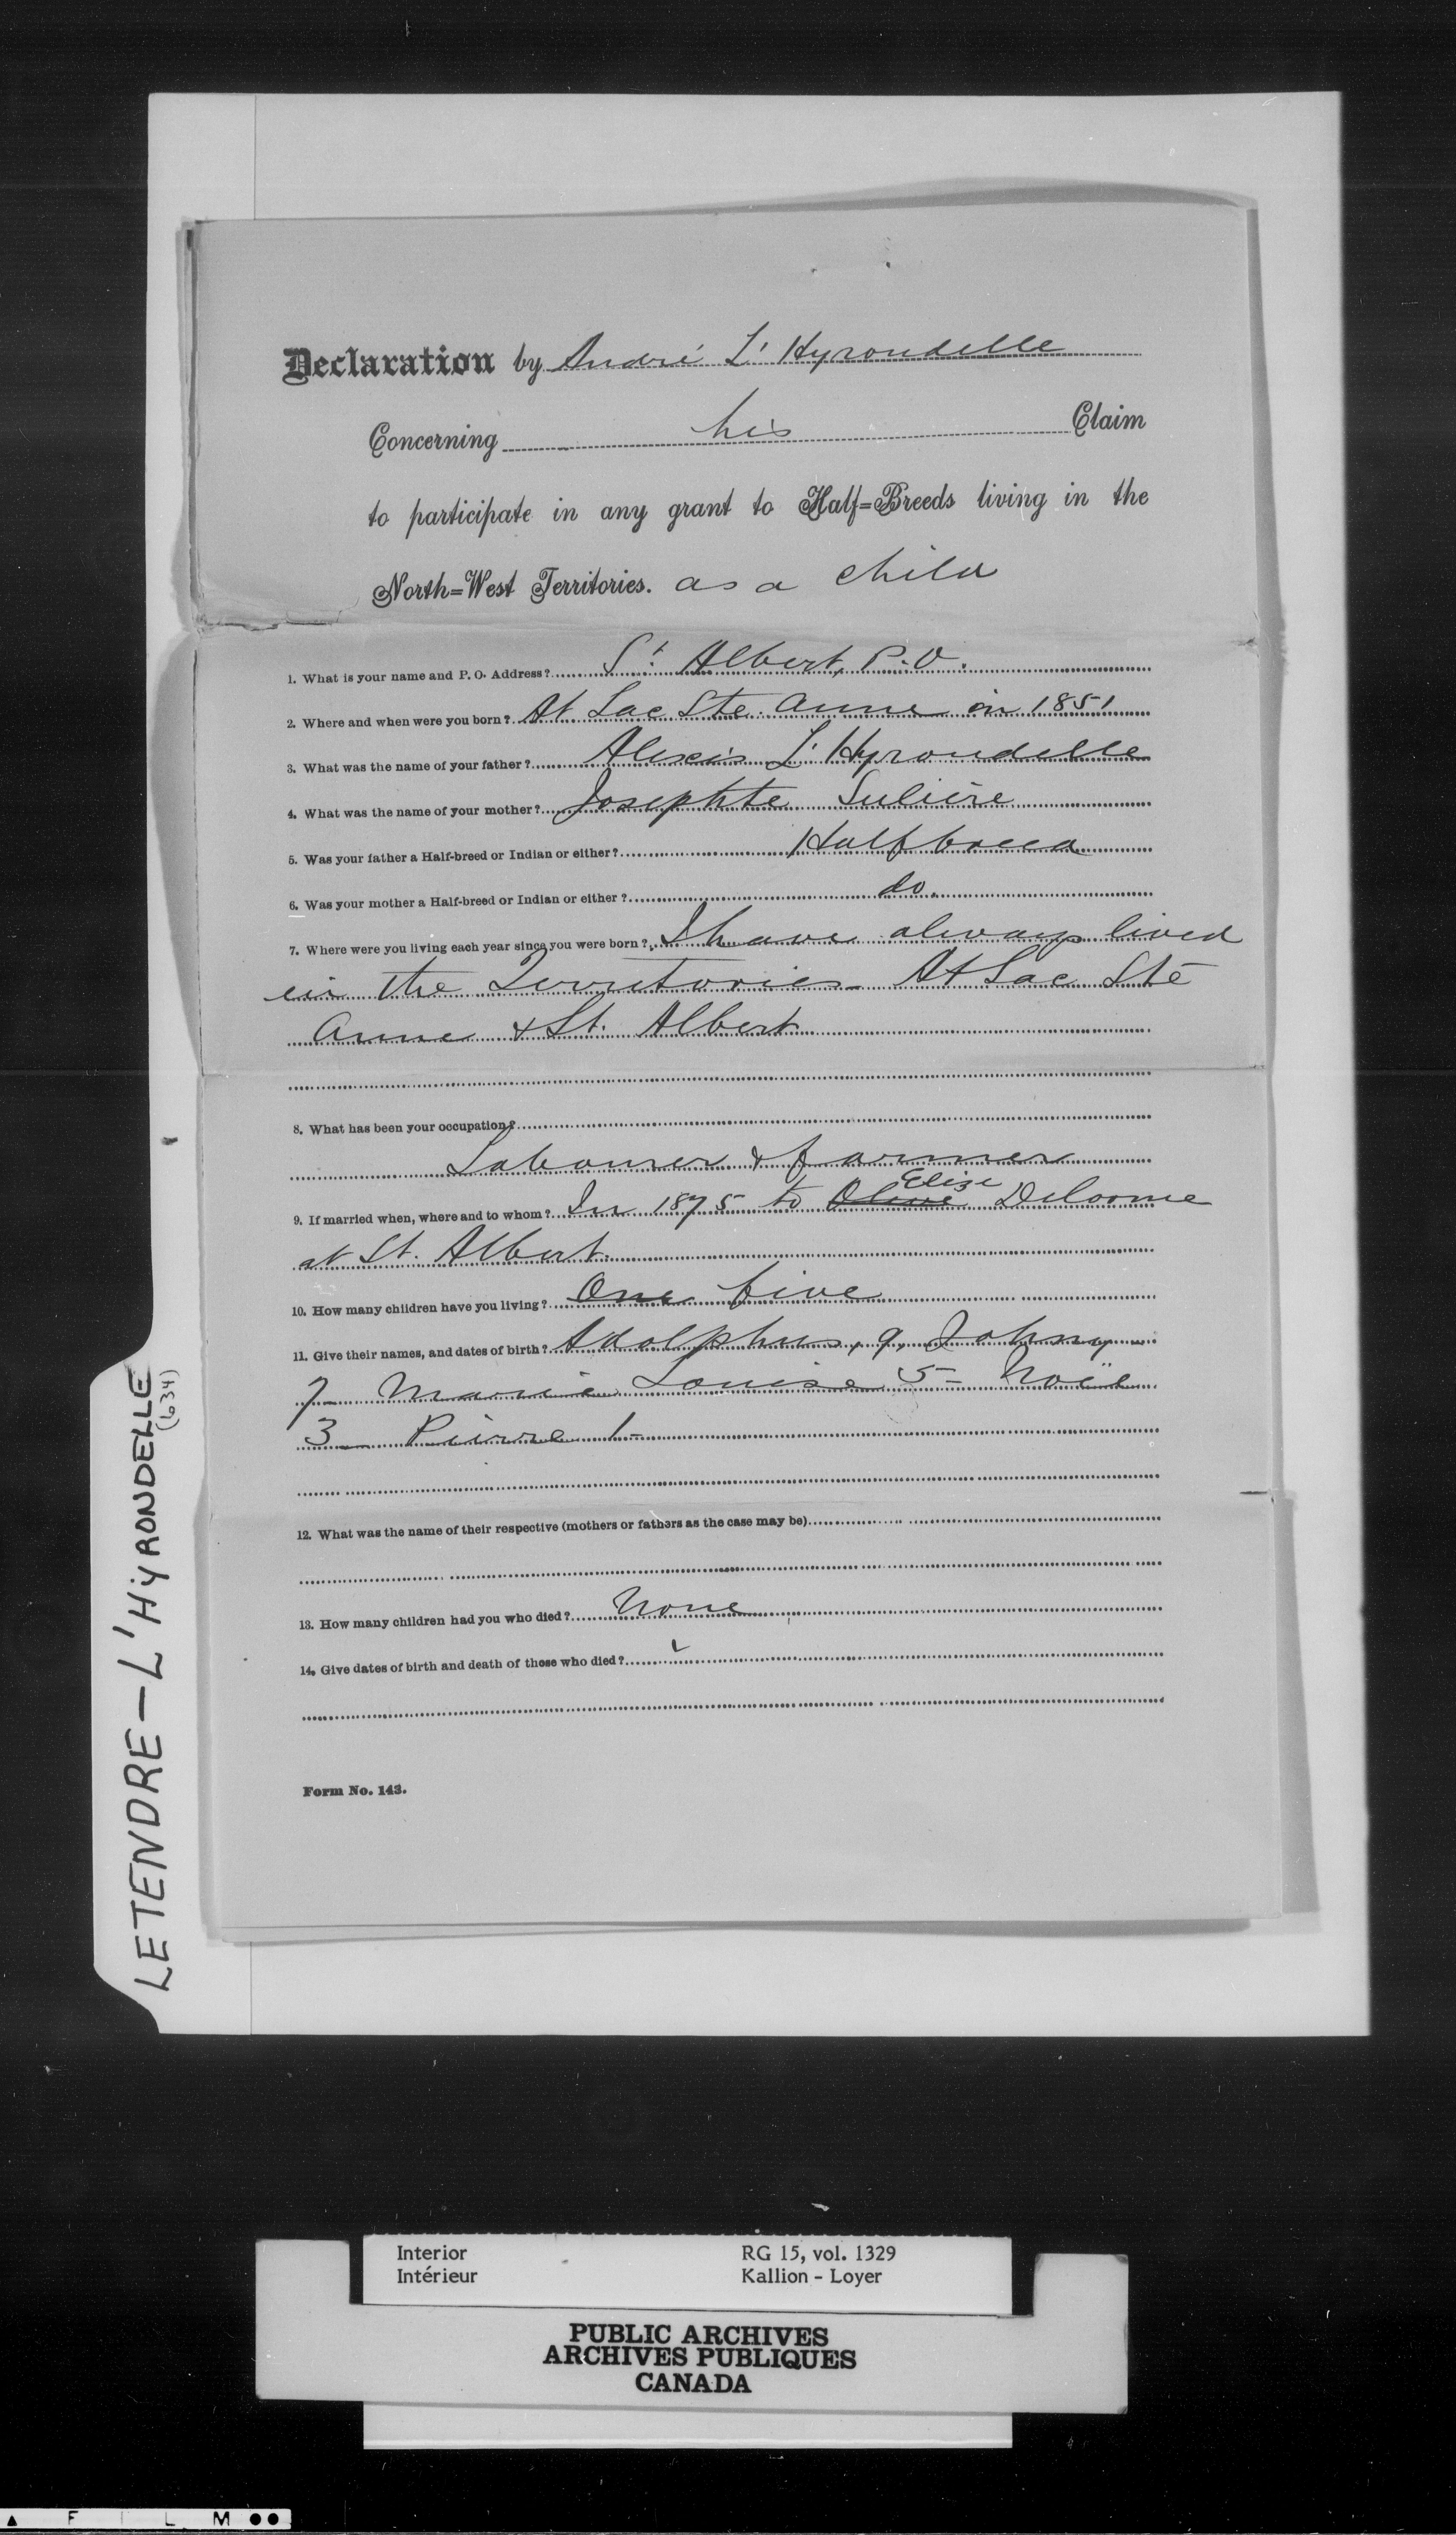 Declaration by André L'Hyrondelle
Concerning his Claim
to participate in any grant to Half=Breeds living in the
North=West Territories. as a child
1. What is your name and P. O. Address? St. Albert, P.O.
2. Where and when were you born? At Lac Ste. Anne in 1851
3. What was the name of your father? Alexis L'Hyrondelle
4. What was the name of your mother? Josephte
5. Was your father a Half-breed or Indian or either? Halfbreed
6. Was your mother a Half-breed or Indian or either? do.
7. Where were you living each year since you were born? I have always lived
in the Territories - At Lac Ste
Anne & St. Albert
8. What has been your occupation?
Labourer & farmer
Elise
9. If married when, where and to whom? In 1875 to Olive Delorme
at St. Albert.
10. How many children have you living? One five
11. Give their names, and dates of birth? Adolphus, 9, Johny
7 - Marie Louise 5 - Noël
3 - Pierre 1 -
12. What was the name of their respective (mothers or fathers as the case may be)
13. How many children had you who died? None
14. Give dates of birth and death of those who died?
Form No. 143.
LETENDRE - L'HYRONDELLE
(634)
Interior RG 15, vol. 1329
Intérieur Kallion - Loyer
PUBLIC ARCHIVES
ARCHIVES PUBLIQUES
CANADA
F I L M